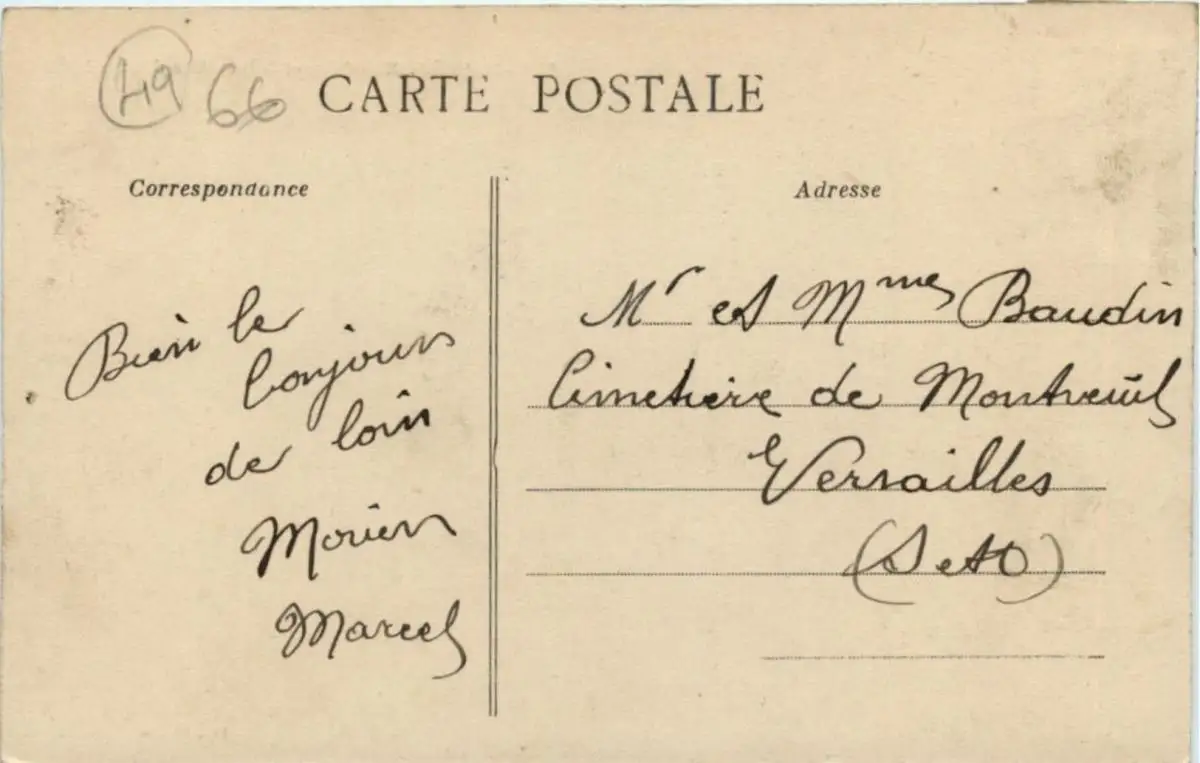 49 66
CARTE POSTALE
Correspondance
Bien le
bonjour
de loin
Marcel
Adresse
Mr et Mmes Baudin
Cimetière de Montreuil
Versailles
(S et O)